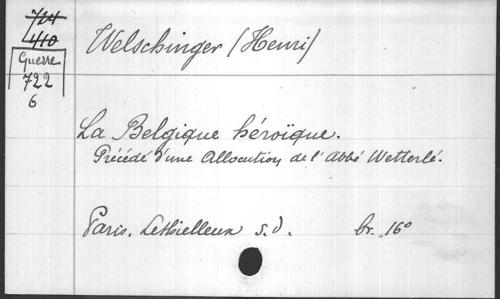 724
410
Guerre
722
6
Welschinger (Henri)
La Belgique héroïque.
Précédé d'une Allocution de l'Abbé Wetterlé.
Paris. Lethielleux s.d. br. 16°